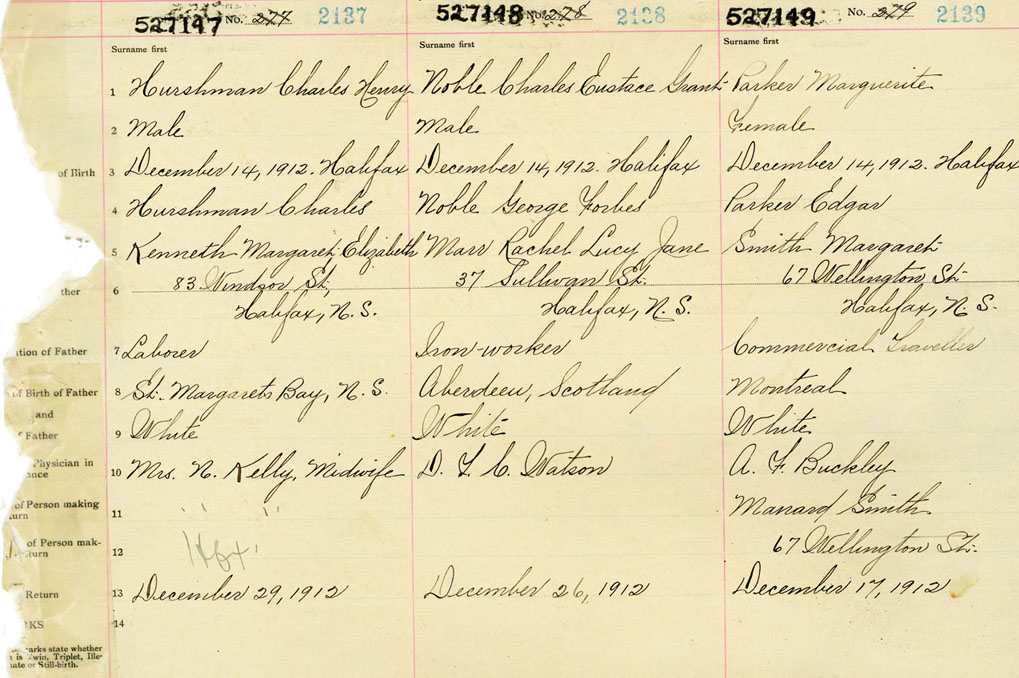 527147 No. 277 2137
527148 No. 278 2138
527149 No. 279 2139
Surname first Surname first Surname first
1 Hurshman Charles Henry Noble Charles Eustace Grant Parker Marguerite
2 Male Male Female
of Birth 3 December 14, 1912. Halifax December 14, 1912. Halifax December 14, 1912. Halifax
4 Hurshman Charles Noble George Forbes Parker Edgar
5 Kenneth Margaret Elizabeth Marr Rachel Lucy Jane Smith Margaret
83 Windsor St, 37 Sullivan St. 67 Wellington St.
ther 6
Halifax, N.S. Halifax, N.S. Halifax, N.S.
ation of Father 7 Laborer Iron-worker Commercial Traveller
of Birth of Father 8 St. Margarets Bay, N.S. Aberdeen, Scotland Montreal
and
Father 9 White White White
Physician in
ance 10 Mrs. N. Kelly, Midwife D. F. C. Watson A. F. Buckley
of Person making
turn 11 " " Smith
of Person mak-
turn 12 Hfx 67 Wellington St.
Return 13 December 29, 1912 December 26, 1912 December 17, 1912
KS 14
arks state whether
is Twin, Triplet, Ille-
ate or Still-birth.